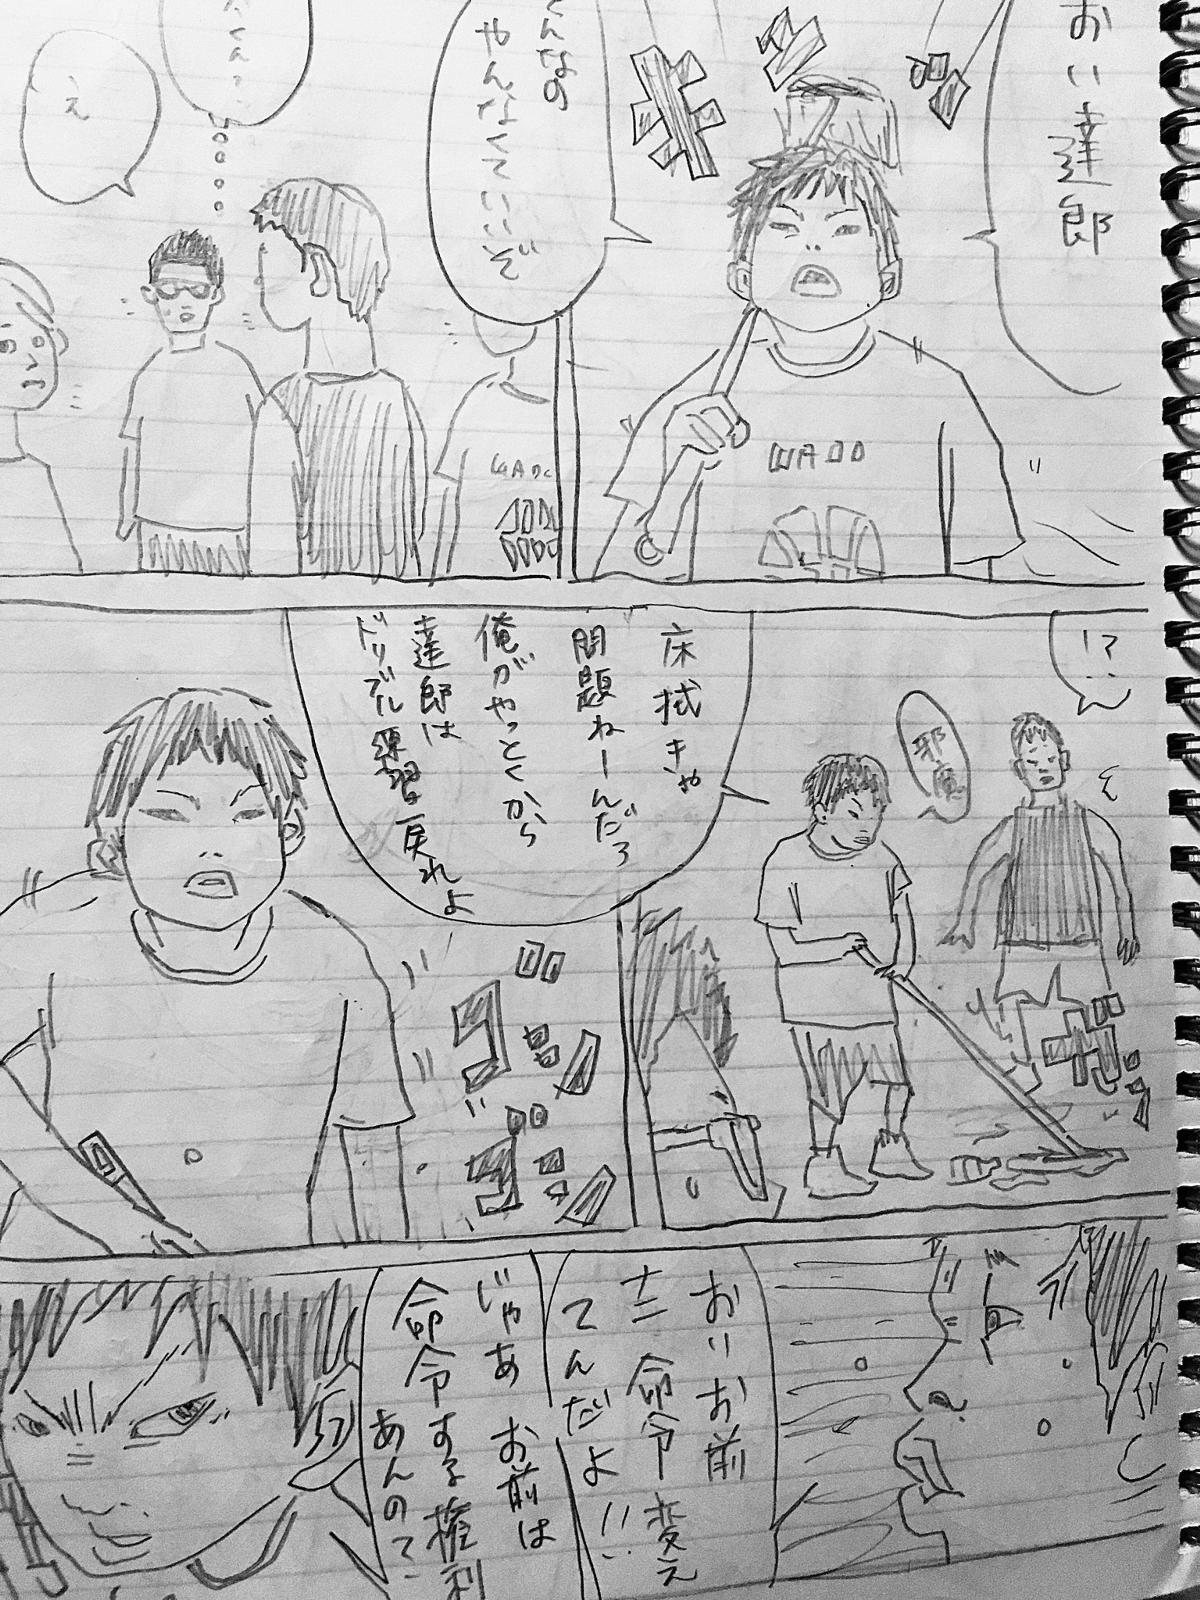 おい達郎
んなの
やんなくていいぞ
くん?
え
WADO
!?
邪魔
床拭きゃ
問題ねーんだろ
俺がやっとくから
達郎は
ドリブル練習戻れよ
おいお前
命令変え
てんだよ!!
じゃあお前は
命令する権利
あんのて